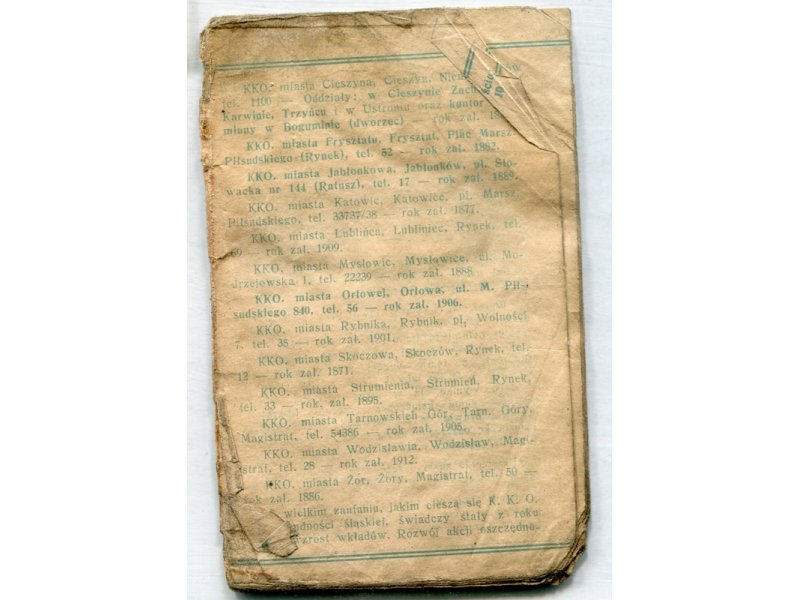 KKO. miasta Cieszyna, Cieszyn,
tel. 1100 — Oddziały: w Cieszynie Zach
Karwinie, Trzyńcu i w Ustroniu oraz kantor
miany w Boguminie (dworzec) — rok zał.
KKO. miasta Frysztatu, Frysztat, Plac Marsz.
Piłsudskiego (Rynek), tel. 52 — rok zał. 1882.
KKO. miasta Jabłonkowa, Jabłonków, pl. Sło-
wacka nr 144 (Ratusz), tel. 17 — rok zał. 1889.
KKO. miasta Katowic, Katowice, pl. Marsz.
Piłsudskiego, tel. 33737/38 — rok zał. 1877.
KKO. miasta Lublińca, Lubliniec, Rynek, tel.
69 — rok zał. 1909.
KKO. miasta Mysłowic, Mysłowice, ul. Mo-
drzejowska 1, tel. 22239 — rok zał. 1888.
KKO. miasta Orłowej, Orłowa, ul. M. Pił-
sudskiego 840, tel. 56 — rok zał. 1906.
KKO. miasta Rybnika, Rybnik, pl. Wolności
7, tel. 35 — rok zał. 1901.
KKO. miasta Skoczowa, Skoczów, Rynek, tel.
12 — rok zał. 1871.
KKO. miasta Strumienia, Strumień, Rynek,
tel. 33 — rok zał. 1895.
KKO. miasta Tarnowskich Gór, Tarn. Góry,
Magistrat, tel. 54386 — rok zał. 1905.
KKO. miasta Wodzisławia, Wodzisław, Magi-
strat, tel. 28 — rok zał. 1912.
KKO. miasta Żor, Żory, Magistrat, tel. 50 —
rok zał. 1886.
wielkim zaufaniu, jakim cieszą się K. K. O.
ludności śląskiej, świadczy stały z roku
wzrost wkładów. Rozwój akcji oszczędno-
ścio
10